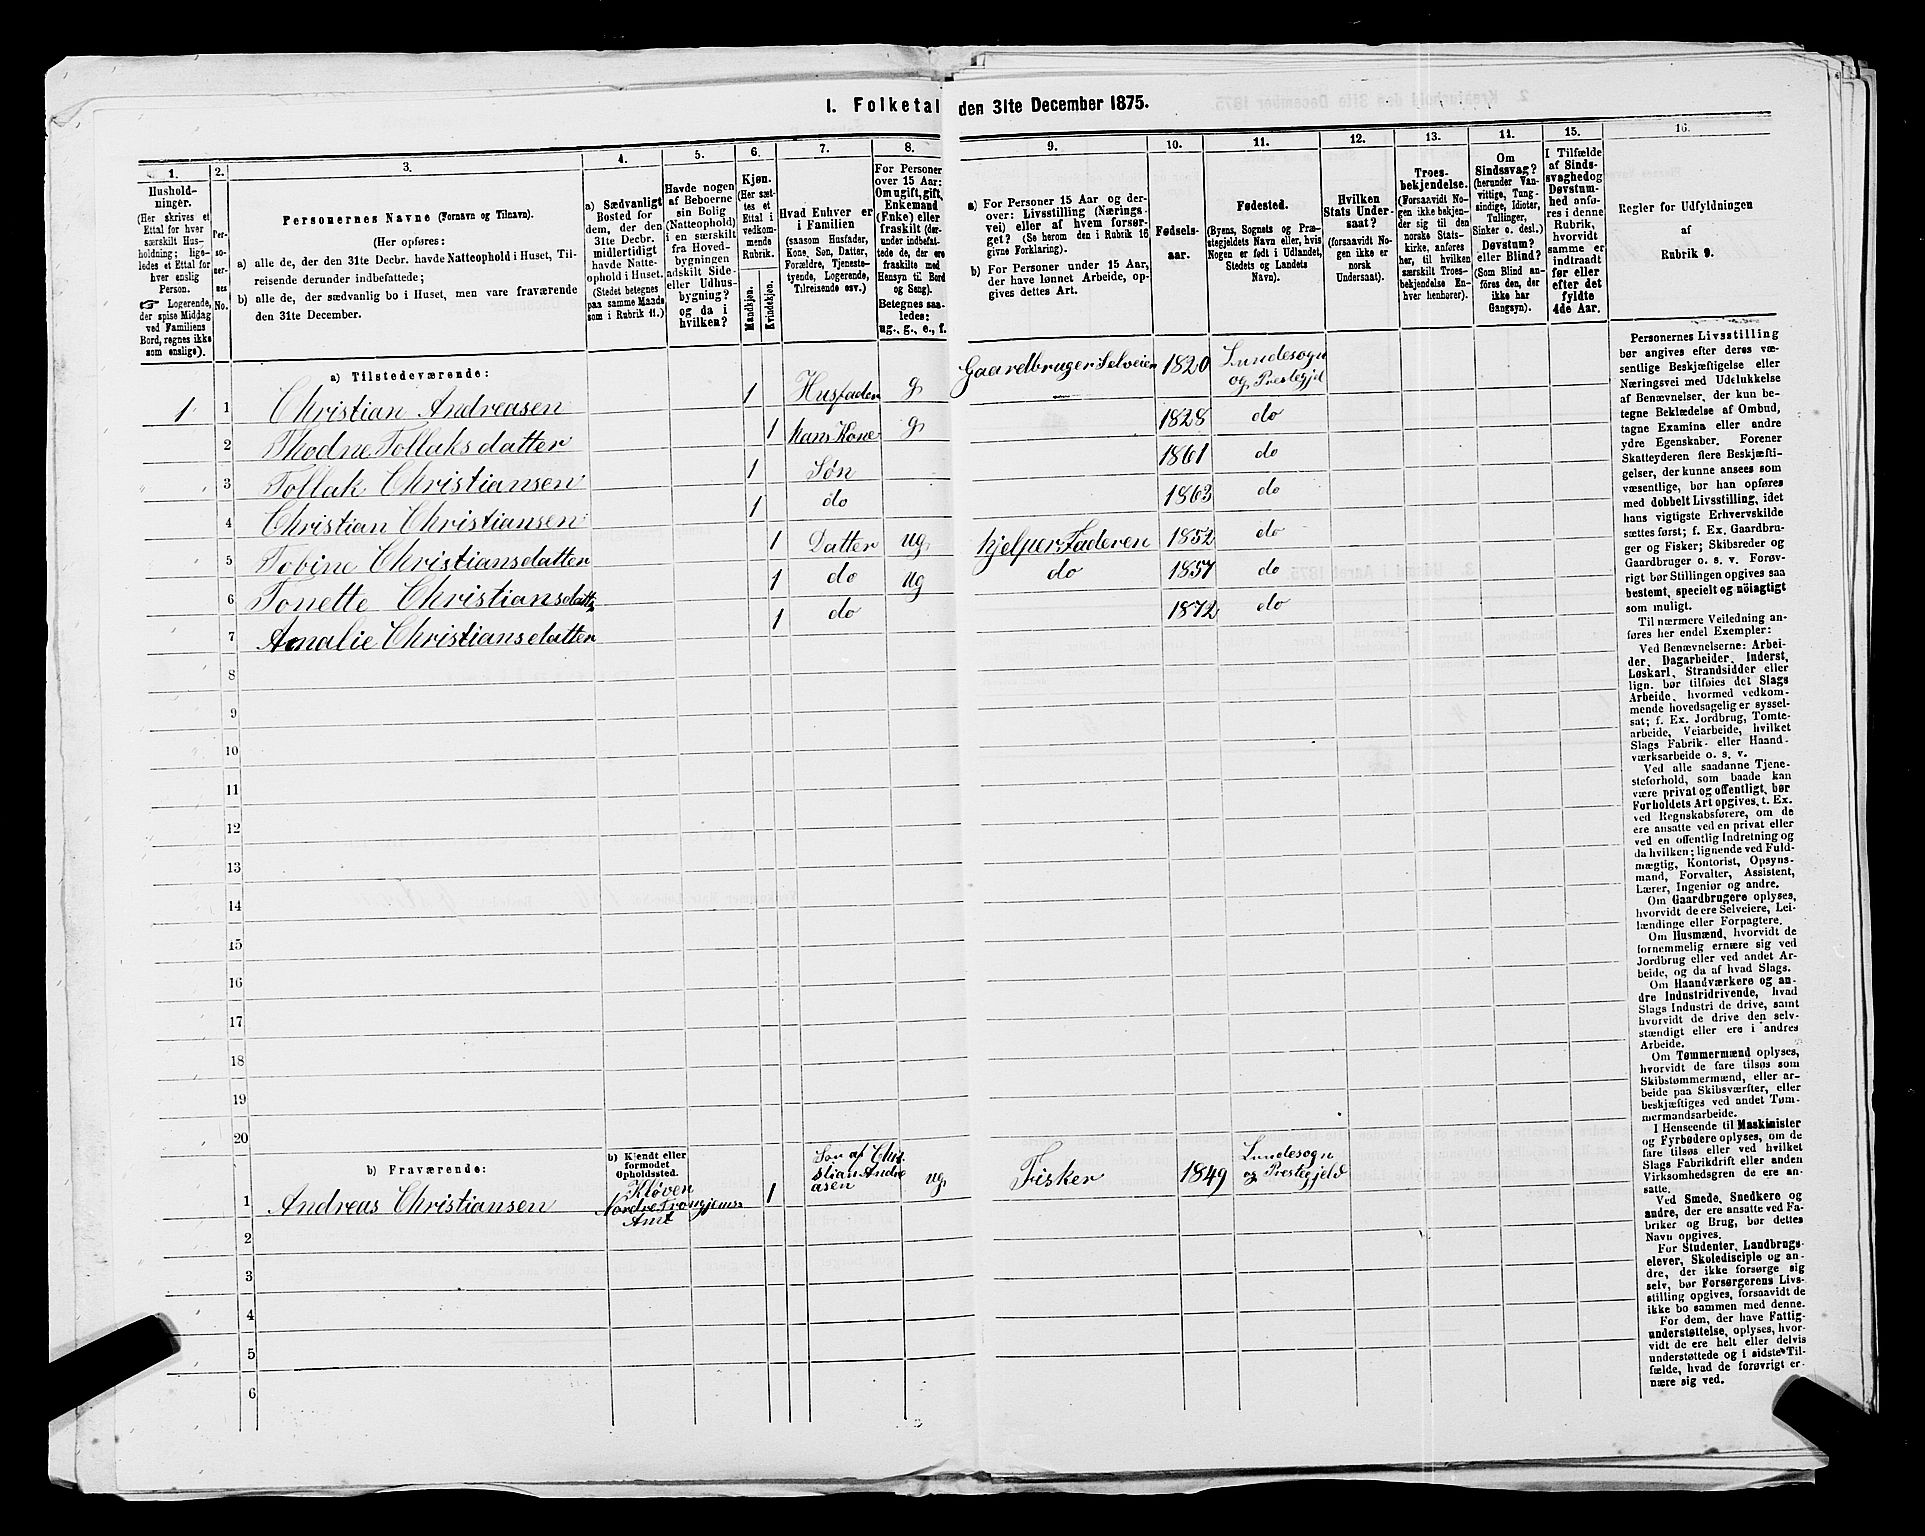 I. Folketal den 31te December 1875.
1. 2. 3. 4. 5. 6. 7. 8. 9. 10. 11. 12. 13. 11. 15. 16.
Hushold-
ninger.
(Her skrives et
Ettal for hver
særskilt Hus-
holdning; lige-
ledes et Ettal for
hver enslig
Person.
☞ Logerende,
der spise Middag
ved Familiens
Bord, regnes ikke
som enslige).
Per-
so-
ner-
nes
No.
Personernes Navne (Fornavn og Tilnavn).
(Her opføres:
a) alle de, der den 31te Decbr. havde Natteophold i Huset, Til-
reisende derunder indbefattede;
b) alle de, der sædvanlig bo i Huset, men vare fraværende
den 31te December.
a) Sædvanligt
Bosted for
dem, der den
31te Decbr.
midlertidigt
havde Natte-
ophold i Huset.
(Stedet betegnes
paa samme Maade
som i Rubrik 11.)
Havde nogen
af Beboerne
sin Bolig
(Natteophold)
i en særskilt
fra Hoved-
bygningen
adskilt Side-
eller Udhus-
bygning?
og da i
hvilken?
Kjøn.
(Her sæt-
tes et
Ettal i
vedkom-
mende
Rubrik.
Mandkjøn.
Kvindekjøn.
Hvad Enhver er
i Familien
(saasom Husfader,
Kone, Søn, Datter,
Forældre, Tjeneste-
tyende, Logerende,
Tilreisende osv.)
For Personer
over 15 Aar:
Om ugift, gift,
Enkemand
(Enke) eller
fraskilt (der-
under indbefat-
tede de, der ere
fraskilte med
Hensyn til Bord
og Seng).
Betegnes saa-
ledes:
ug., g., e., f.
a) For Personer 15 Aar og der-
over: Livsstilling (Nærings-
vei) eller af hvem forsør-
get? (Se herom den i Rubrik 16
givne Forklaring).
b) For Personer under 15 Aar,
der have lønnet Arbeide, op-
gives dettes Art.
Fødsels-
aar.
Fødested.
(Byens, Sognets og Præ-
stegjeldets Navn eller, hvis
Nogen er født i Udlandet,
Stedets og Landets
Navn).
Hvilken
Stats Under-
saat?
(forsaavidt No-
gen ikke er
norsk
Undersaat).
Troes-
bekjendelse.
(Forsaavidt No-
gen ikke bekjen-
der sig til den
norske Stats-
kirke, anføres
her, til hvilken
særskilt Troes-
bekjendelse En-
hver henhører).
Om
Sindssvag?
(herunder Van-
vittige, Tung-
sindige, Idioter,
Tullinger,
Sinker o. desl.)
Døvstum?
eller Blind?
(Som Blind an-
føres den, der
ikke har
Gangsyn).
I Tilfælde
af Sinds-
svaghed og
Døvstum-
hed anfø-
res i denne
Rubrik,
hvorvidt
samme er
indtraadt
før eller
efter det
fyldte
4de Aar.
Regler for Udfyldningen
af
Rubrik 9.
a) Tilstedeværende:
1 1 Christian Andreasen 1 Husfader g Gaardbruger Selveier 1820 Lundesogn
og Prestegjel
2 Thodne Tollaksdatter 1 Hans Kone g 1828 do
3 Tollak Christiansen 1 Søn 1861 do
4 Christian Christiansen 1 do 1863 do
5 Tobine Christiansdatter 1 Datter ug hjelper Faderen 1852 do
6 Tonette Christiansdatt 1 do ug do 1857 do
7 Amalie Christiansdatter 1 do 1872 do
8
9
10
11
12
13
14
15
16
17
18
19
20
b) Fraværende:
b) Kjendt eller
formodet
Opholdssted.
1 Andreas Christiansen Kløven
Nordre Trongjems
Amt 1 Søn af Chri
stian Andre
asen ug Fisker 1849 Lundesogn
og Prestegjeld
2
3
4
5
6
Personernes Livsstilling
bør angives efter deres væ-
sentlige Beskjæftigelse eller
Næringsvei med Udelukkelse
af Benævnelser, der kun be-
tegne Beklædelse af Ombud,
tagne Examina eller andre
ydre Egenskaber. Forener
Skatteyderen flere Beskjæfti-
gelser, der kunne ansees som
væsentlige, bør han opføres
med dobbelt Livsstilling, idet
hans vigtigste Erhvervskilde
sættes først; f. Ex. Gaardbru-
ger og Fisker; Skibsreder og
Gaardbruger o. s. v. Forøv-
rigt bør Stillingen opgives saa
bestemt, specielt og nöiagtigt
som muligt.
Til nærmere Veiledning an-
føres her endel Exempler:
Ved Benævnelserne: Arbei-
der, Dagarbeider, Inderst,
Løskarl, Strandsidder eller
lign. bør tilføies det Slags
Arbeide, hvormed vedkom-
mende hovedsagelig er syssel-
sat; f. Ex. Jordbrug, Tomte-
arbeide, Veiarbeide, hvilket
Slags Fabrik- eller Haand-
værksarbeide o. s. v.
Ved alle saadanne Tjene-
steforhold, som baade kan
være privat og offentligt, bør
Forholdets Art opgives, t. Ex.
ved Regnskabsførere, om de
ere ansatte ved en privat eller
ved en offentlig Indretning og
da hvilken; lignende ved Fuld-
mægtig, Kontorist, Opsyns-
mand, Forvalter, Assistent,
Lærer, Ingeniør og andre.
Om Gaardbrugere oplyses,
hvorvidt de ere Selveiere, Lei-
lændinge eller Forpagtere.
Om Husmænd, hvorvidt de
fornemmelig ernære sig ved
Jordbrug eller ved andet Ar-
beide, og da af hvad Slags.
Om Haandværkere og an-
dre Industridrivende, hvad
Slags Industri de drive, samt
hvorvidt de drive den selv-
stændigt eller ere i andres
Arbeide.
Om Tømmermænd oplyses,
hvorvidt de fare tilsøs som
Skibstømmermænd, eller ar-
beide paa Skibsværfter, eller
beskjæftiges ved andet Tøm-
mermandsarbeide.
I Henseende til Maskinister
og Fyrbødere oplyses, om de
fare tilsøs eller ved hvilket
Slags Fabrikdrift eller anden
Virksomhedsgren de ere an-
satte.
Ved Smede, Snedkere og
andre, der ere ansatte ved Fa-
briker og Brug, bør dettes
Navn opgives.
For Studenter, Landbrugs-
elever, Skoledisciple og an-
dre, der ikke forsørge sig
selv, bør Forsørgerens Livs-
stilling opgives, forsaavidt de
ikke bo sammen med denne.
For dem, der have Fattig-
understøttelse, oplyses, hvor-
vidt de ere helt eller delvis
understøttede og i sidste Til-
fælde, hvad de forøvrigt er-
nære sig ved.